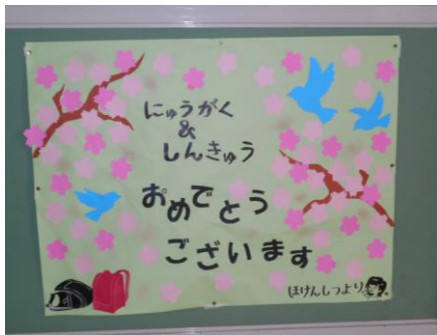 にゅうがく
&
しんきゅう
おめでとう
ございます
ほけんしつより